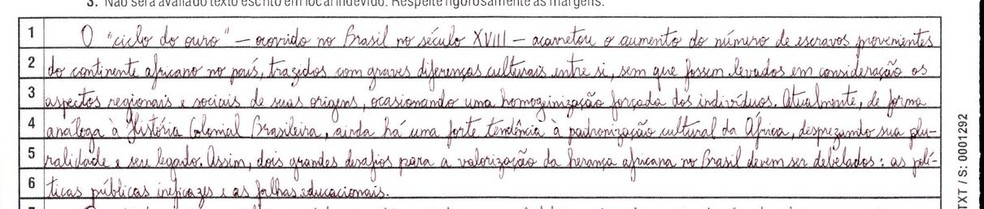 3. Não será avaliado texto escrito em local indevido. Respeite rigorosamente as margens.
1 O "ciclo do ouro" – ocorrido no Brasil no século XVIII – acarretou o aumento do número de escravos provenientes
2 do continente africano no país, trazidos com graves diferenças culturais entre si, sem que fossem levados em consideração os
3 aspectos regionais e sociais de suas origens, ocasionando uma homogeinização forçada dos indivíduos. Atualmente, de forma
4 análoga à História Colonial Brasileira, ainda há uma forte tendência à padronização cultural da África, desprezando sua plu-
5 ralidade e seu legado. Assim, dois grandes desafios para a valorização da herança africana no Brasil devem ser debelados: as polí-
6 ticas públicas ineficazes e as falhas educacionais.
TXT / S: 0001292